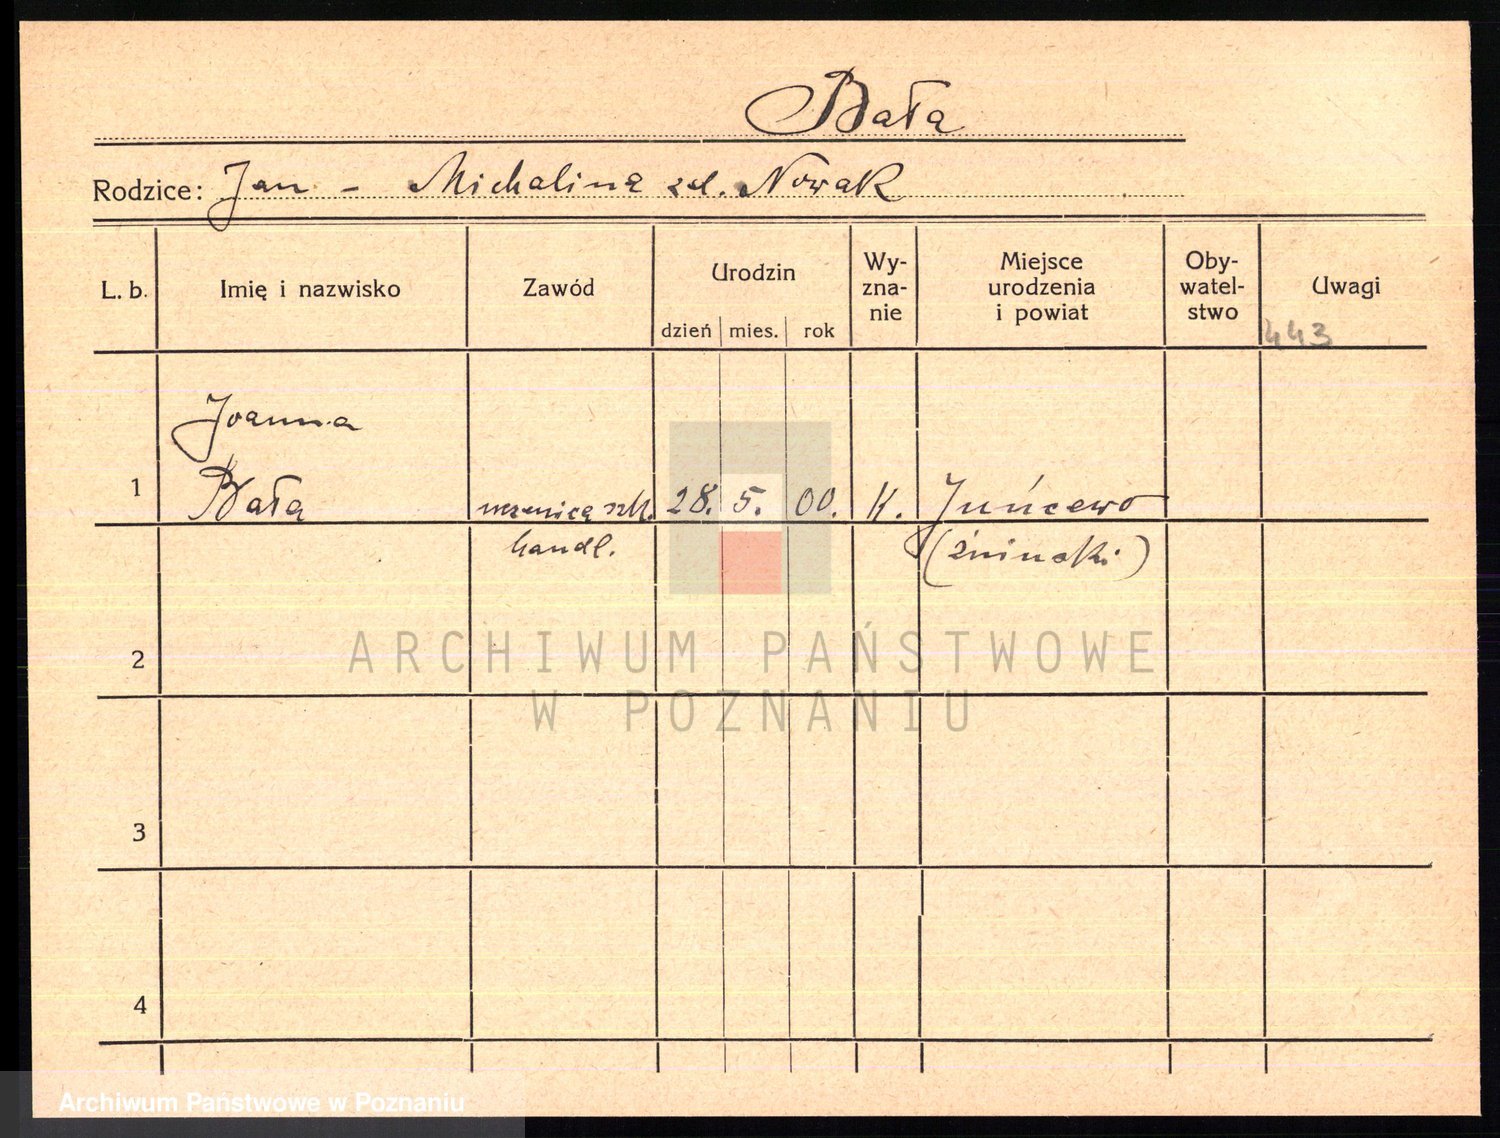 Bała
Rodzice: Jan - Michalina zd. Nowak
L. b. Imię i nazwisko Zawód Urodzin dzień mies. rok Wyznanie Miejsce urodzenia i powiat Obywatelstwo Uwagi
443
Joanna
1 Bała uczenica szk. 28. 5. 00. K. Juńcewo
handl. (żniński)
2
ARCHIWUM PAŃSTWOWE
W POZNANIU
3
4
Archiwum Państwowe w Poznaniu